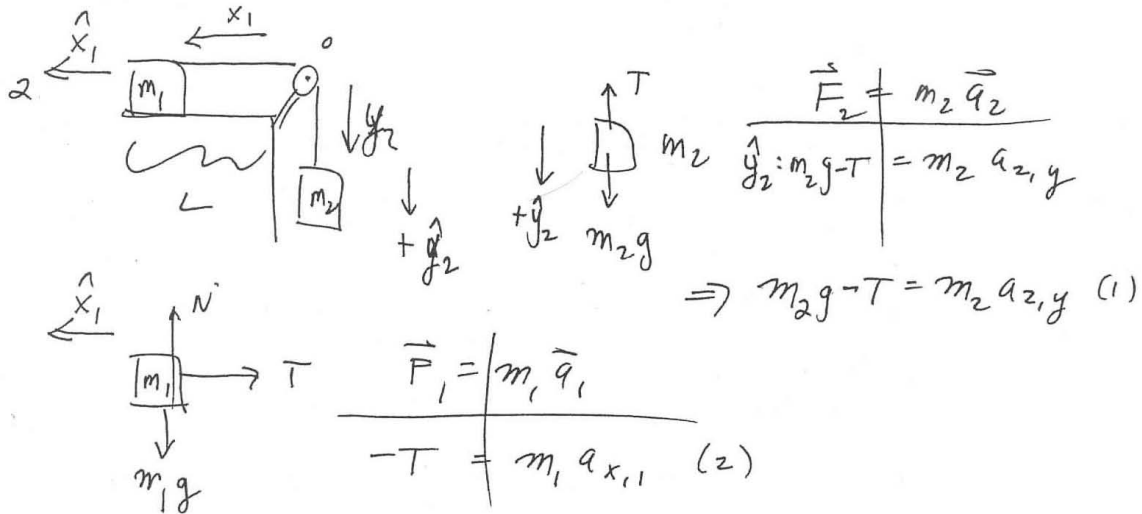 x̂₁ x₁ o
2 m₁
y₂
L m₂
+ ŷ₂
T
m₂
+ŷ₂ m₂g
F⃗₂ = m₂ a⃗₂
ŷ₂: m₂g-T = m₂ a₂,y
⇒ m₂g-T = m₂ a₂,y (1)
x̂₁ N
m₁ T
m₁g
F⃗₁ = m₁ a⃗₁
-T = m₁ aₓ,₁ (2)